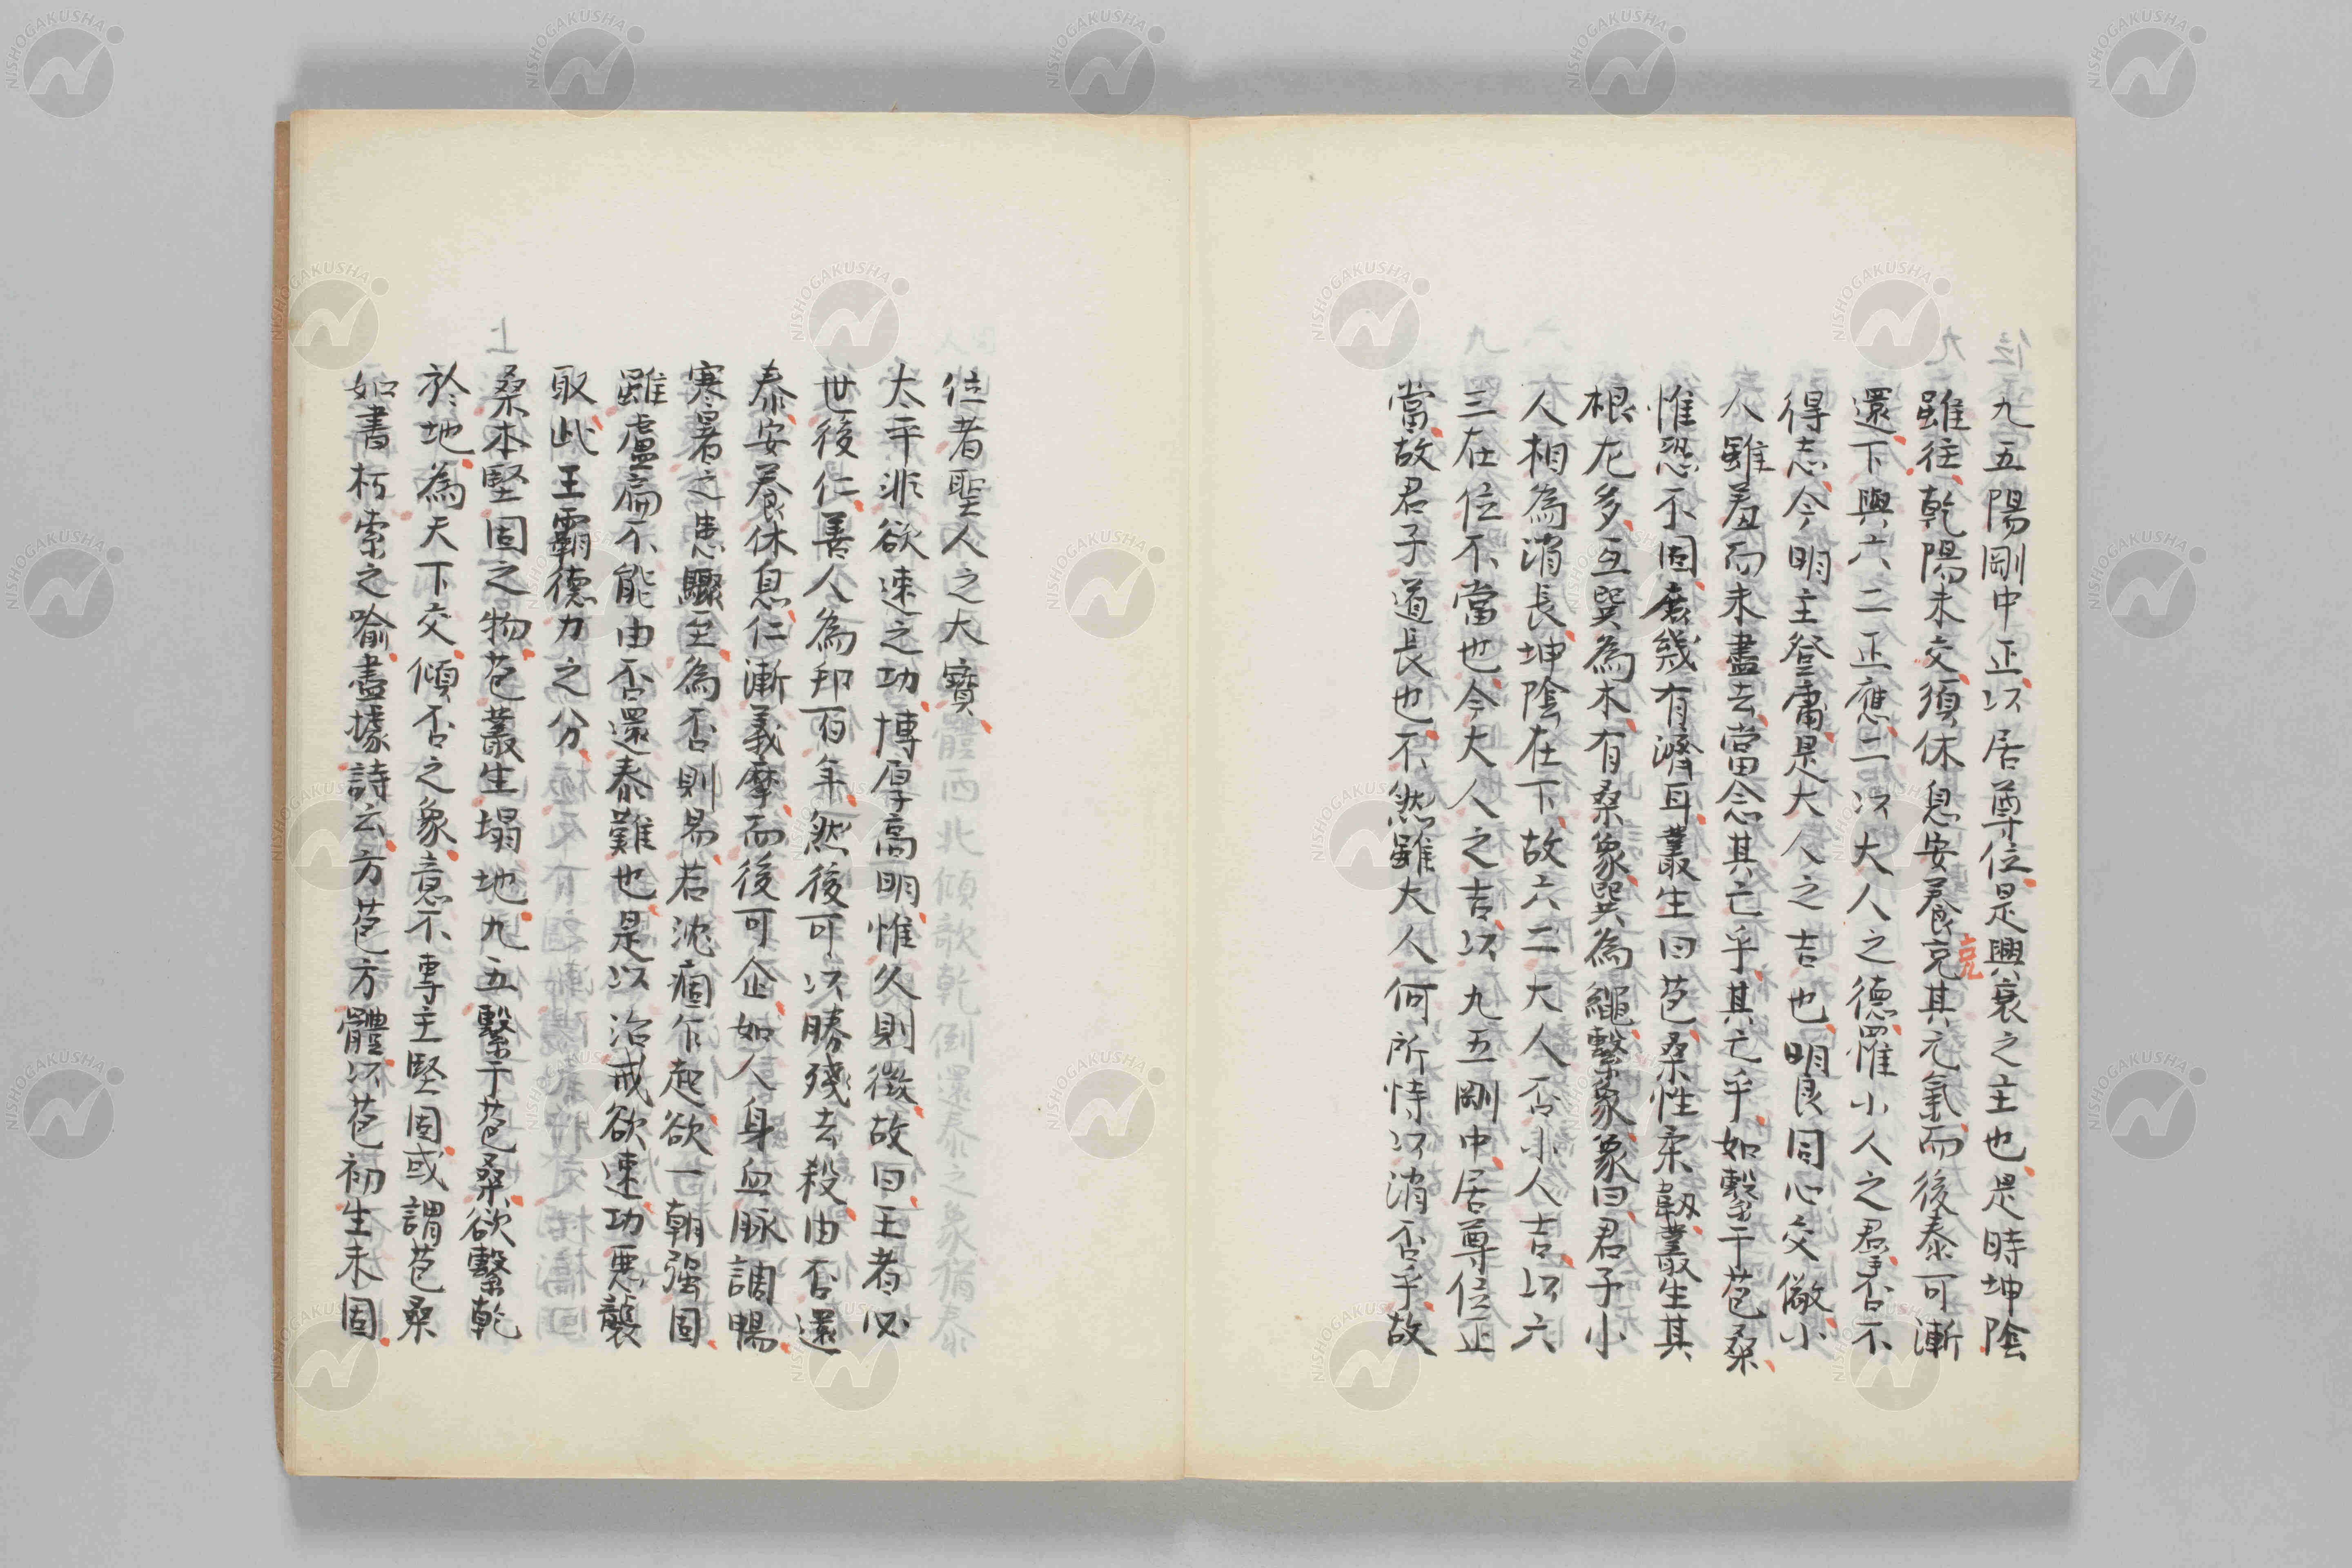 九五陽剛中正以居尊位是興衰之主也是時坤陰
雖往乾陽未交須休息安養克其元氣而後泰可漸
克
還下與六二正應二以大人之德罹小人之羣否不
得志今明主登庸是大人之吉也明良同心交儆小
人雖羞而未盡去當念其亡乎其亡乎如繫于苞桑
惟恐不固庶幾有濟耳叢生曰苞桑性柔韌叢生其
根尤多互巽為木有桑象巽為繩繫象象曰君子小
人相為消長坤陰在下故六二大人否小人吉以六
三在位不當也今大人之吉以九五剛中居尊位正
當故君子道長也不然雖大人何所恃以消否乎故
位者聖人之大寶
太平非欲速之功博厚高明惟久則徵故曰王者必
世後仁善人為邦百年然後可以勝殘去殺由否還
泰安養休息仁漸義摩而後可企如人身血脉調暢
寒暑之患驟至為否則易若沈痼乍起欲一朝强固
雖盧扁不能由否還泰難也是以治戒欲速功惡襲
取此王霸德力之分
桑本堅固之物苞叢生塌地九五繫于苞桑欲繫乾
於地為天下交傾否之象意不專主堅固或謂苞桑
如書朽索之喻盡據詩云方苞方體以苞初生未固
NISHOGAKUSHA